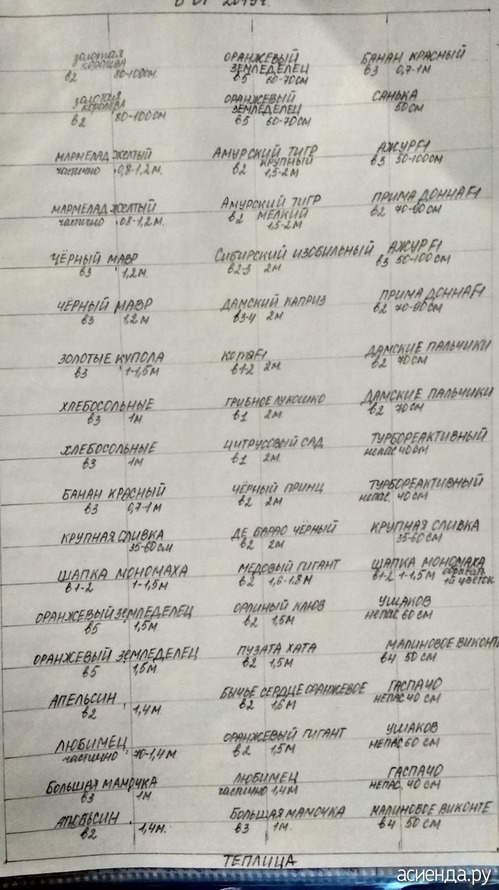 В 01 2019г.
ЗОЛОТАЯ КОРОЛЕВА
в2 80-100см.
ЗОЛОТАЯ КОРОЛЕВА
в2 80-100см
МАРМЕЛАД ЖЕЛТЫЙ
частично 0,8-1,2м.
МАРМЕЛАД ЖЕЛТЫЙ
частично 0,8-1,2м.
ЧЁРНЫЙ МАВР
в3 1,2м.
ЧЁРНЫЙ МАВР
в3 1,2м
ЗОЛОТЫЕ КУПОЛА
в3 1-1,5м
ХЛЕБОСОЛЬНЫЕ
в3 1м
ХЛЕБОСОЛЬНЫЕ
в3 1м
БАНАН КРАСНЫЙ
в3 0,7-1м
КРУПНАЯ СЛИВКА
35-60см
ШАПКА МОНОМАХА
в1-2 1-1,5м
ОРАНЖЕВЫЙ ЗЕМЛЕДЕЛЕЦ
в5 1,5м
ОРАНЖЕВЫЙ ЗЕМЛЕДЕЛЕЦ
в5 1,5м
АПЕЛЬСИН
в2 1,4м
ЛЮБИМЕЦ
частично 70-1,4м
БОЛЬШАЯ МАМОЧКА
в3 1м
АПЕЛЬСИН
в2 1,4м.
ОРАНЖЕВЫЙ
ЗЕМЛЕДЕЛЕЦ
в5 60-70см
ОРАНЖЕВЫЙ
ЗЕМЛЕДЕЛЕЦ
в5 60-70см
АМУРСКИЙ ТИГР
в2 КРУПНЫЙ
1,5-2м
АМУРСКИЙ ТИГР
в2 МЕЛКИЙ
1,5-2м
СИБИРСКИЙ ИЗОБИЛЬНЫЙ
в2-3 2м
ДАМСКИЙ КАПРИЗ
в3-4 2м
в1-2 2м
ГРИБНОЕ ЛУКОШКО
в1 2м.
ЦИТРУСОВЫЙ САД
в1 2м.
ЧЁРНЫЙ ПРИНЦ
в2 2м
ДЕ БАРАО ЧЁРНЫЙ
в2 2м
МЕДОВЫЙ ГИГАНТ
в2 1,6-1,8м
ОРЛИНЫЙ КЛЮВ
в2 1,5м
ПУЗАТА ХАТА
в2 1,5м
БЫЧЬЕ СЕРДЦЕ ОРАНЖЕВОЕ
в2 1,6м
ОРАНЖЕВЫЙ ГИГАНТ
в2 1,5м
ЛЮБИМЕЦ
частично 1,4м
БОЛЬШАЯ МАМОЧКА
в3 1м.
БАНАН КРАСНЫЙ
в3 0,7-1м
САНЬКА
50см
АЖУР F1
в3 50-100см
ПРИМА ДОННА F1
в2 70-90см
АЖУР F1
в3 50-100см
ПРИМА ДОННА F1
в2 70-90см
ДАМСКИЕ ПАЛЬЧИКИ
в2 70см
ДАМСКИЕ ПАЛЬЧИКИ
в2 70см
ТУРБОРЕАКТИВНЫЙ
непас 40см
ТУРБОРЕАКТИВНЫЙ
непас. 40см
КРУПНАЯ СЛИВКА
35-60см
ШАПКА МОНОМАХА
в1-2 1-1,5м
1й цветок
УШАКОВ
непас 60см
МАЛИНОВОЕ ВИКОНТЕ
в4 50см
ГАСПАЧО
НЕПАС 40см
УШАКОВ
НЕПАС 60см
ГАСПАЧО
НЕПАС. 40см
МАЛИНОВОЕ ВИКОНТЕ
в4 50см
ТЕПЛИЦА
асиенда.ру